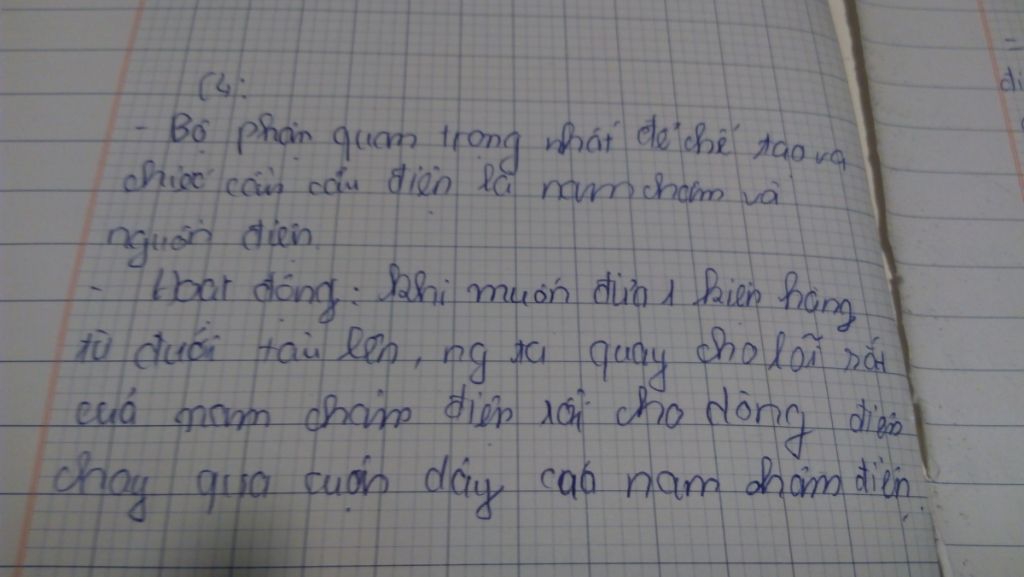 C4:
- Bộ phận quan trọng nhất để chế tạo ra
chiếc cần cẩu điện là nam châm và
nguồn điện.
- Hoạt động: Khi muốn đưa 1 kiện hàng
từ dưới tàu lên, ng ta quay cho lõi sắt
của nam châm điện rồi cho dòng điện
chạy qua cuộn dây của nam châm điện.
=